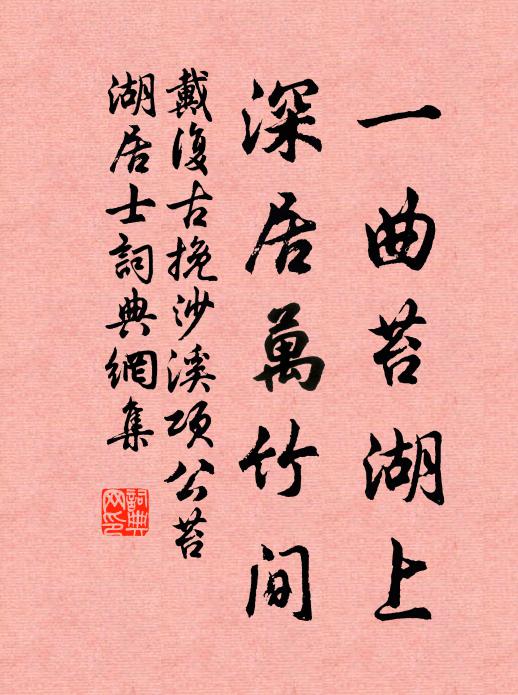 一曲苔湖上
深居萬竹間
戴復古挽沙溪項公苔
湖居士詞典網集
詞典網印